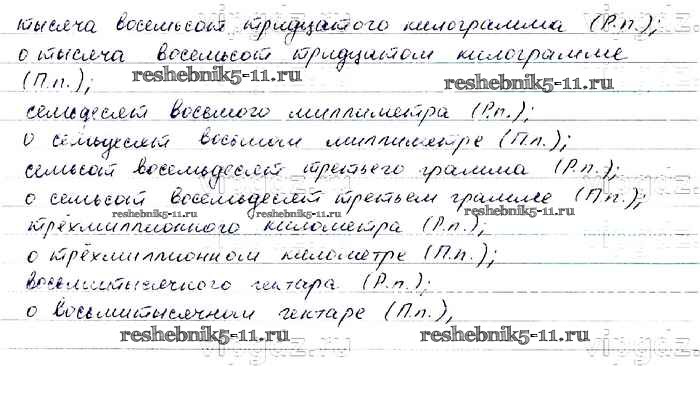 тысяча восемьсот тридцатого килограмма (Р.п.);
о тысяча восемьсот тридцатом килограмме
(П.п.);
reshebnik5-11.ru reshebnik5-11.ru
семьдесят восьмого миллиметра (Р.п.);
о семьдесят восьмом миллиметре (П.п.);
семьсот восемьдесят третьего грамма (Р.п.);
о семьсот восемьдесят третьем грамме (П.п.);
reshebnik5-11.ru reshebnik5-11.ru reshebnik5-11.ru
трёхмиллионного километра (Р.п.);
о трёхмиллионном километре (П.п.);
восьмитысячного гектара (Р.п.);
о восьмитысячном гектаре (П.п.),
reshebnik5-11.ru reshebnik5-11.ru